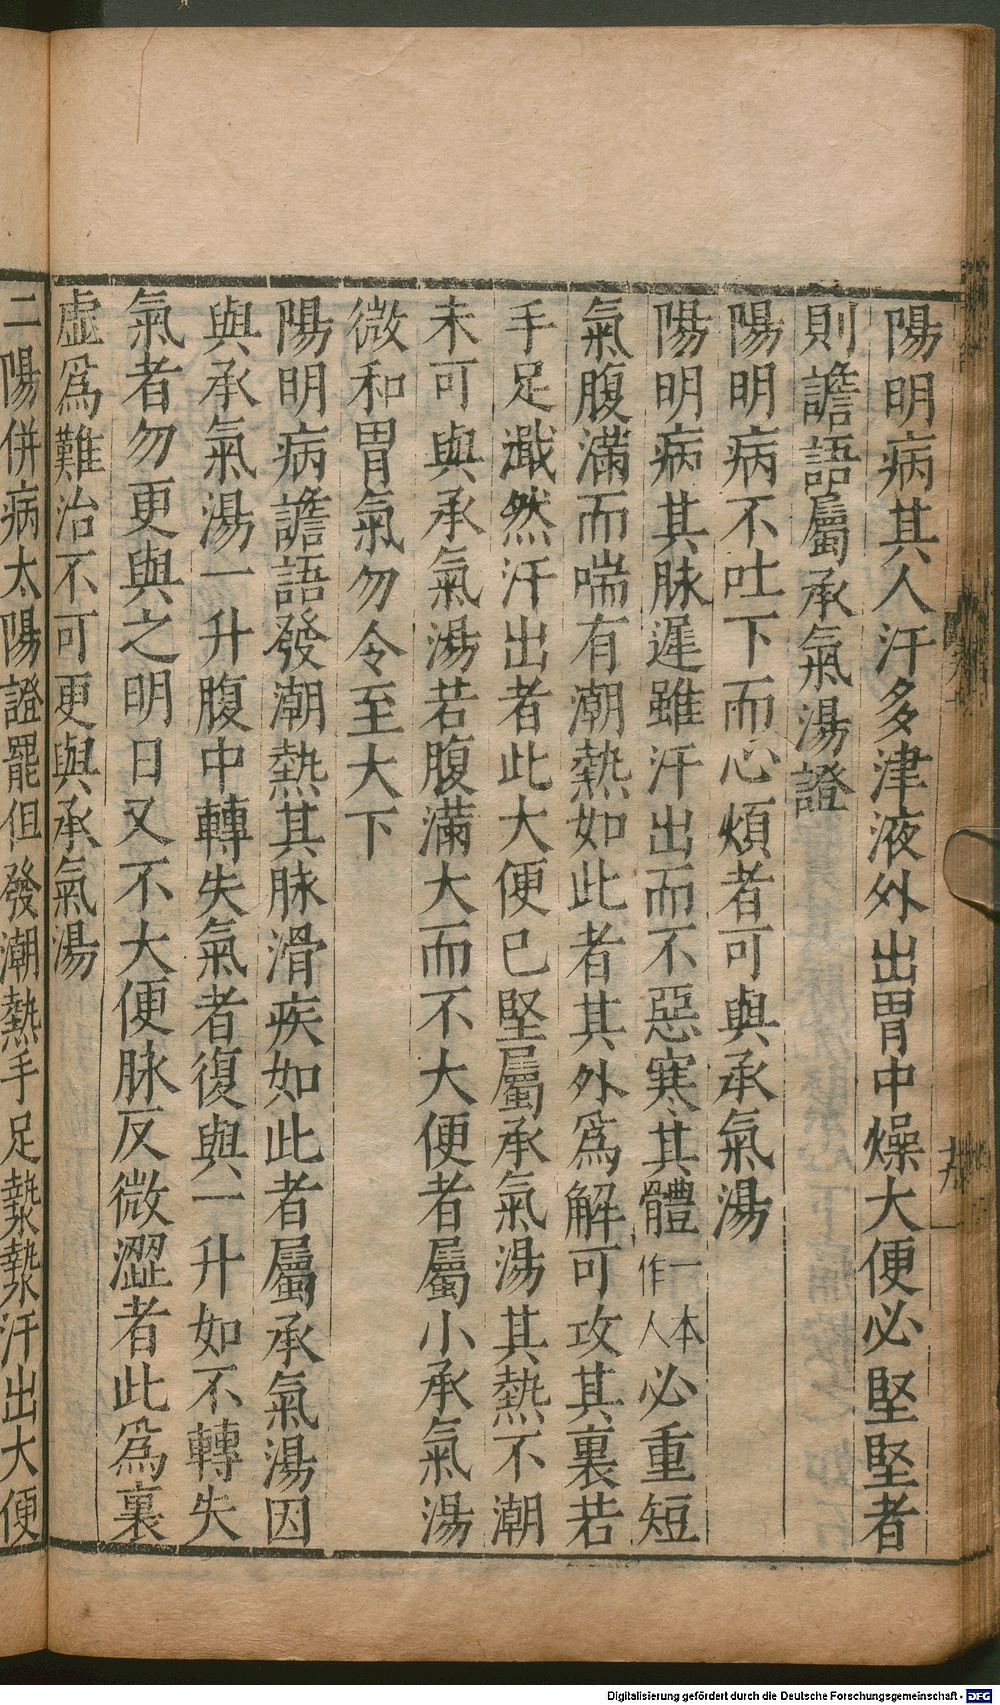 陽明病其人汗多津液外出胃中燥大便必堅堅者
則譫語屬承氣湯證
陽明病不吐下而心煩者可與承氣湯
陽明病其脉遲雖汗出而不惡寒其體一本作人必重短
氣腹滿而喘有潮熱如此者其外爲解可攻其裏若
手足濈然汗出者此大便已堅屬承氣湯其熱不潮
未可與承氣湯若腹滿大而不大便者屬小承氣湯
微和胃氣勿令至大下
陽明病譫語發潮熱其脉滑疾如此者屬承氣湯因
與承氣湯一升腹中轉失氣者復與一升如不轉失
氣者勿更與之明日又不大便脉反微澀者此爲裏
虛爲難治不可更與承氣湯
二陽併病太陽證罷但發潮熱手足漐漐汗出大便
Digitalisierung gefördert durch die Deutsche Forschungsgemeinschaft - DFG